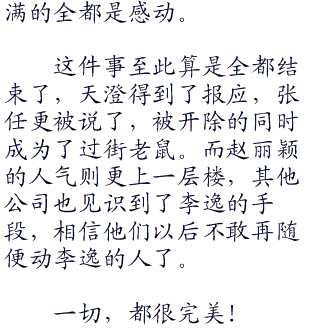 满的全都是感动。
这件事至此算是全都结
束了，天澄得到了报应，张
任更被说了，被开除的同时
成为了过街老鼠。而赵丽颖
的人气则更上一层楼，其他
公司也见识到了李逸的手
段，相信他们以后不敢再随
便动李逸的人了。
一切，都很完美！